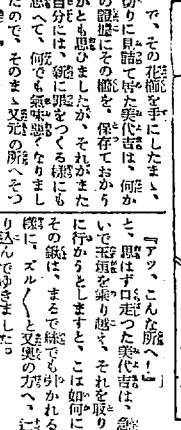 で、その花櫛を手にしたまゝ、
切りに見詰て居た美代吉は、何か
の證據にその櫛を、保存ておかう
がとも思ひましたが、それがまた
自分には、新に罪をつくる樣にも
思へて、何でも氣味惡くなりまし
たので、そのまゝ又元の所へそつ
『アッ、こんな所へ！』
と、思はず口走つた美代吉は、急
いで玉垣を乘り越え、それを取り
に行かうとしますと、こは如何に
その銀は、まるで糸でも引かれる
樣に、ズル〳〵と又奥の方へ、辷
り込んでゆきました。